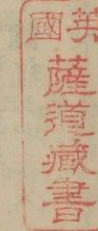 英國
薩道藏書